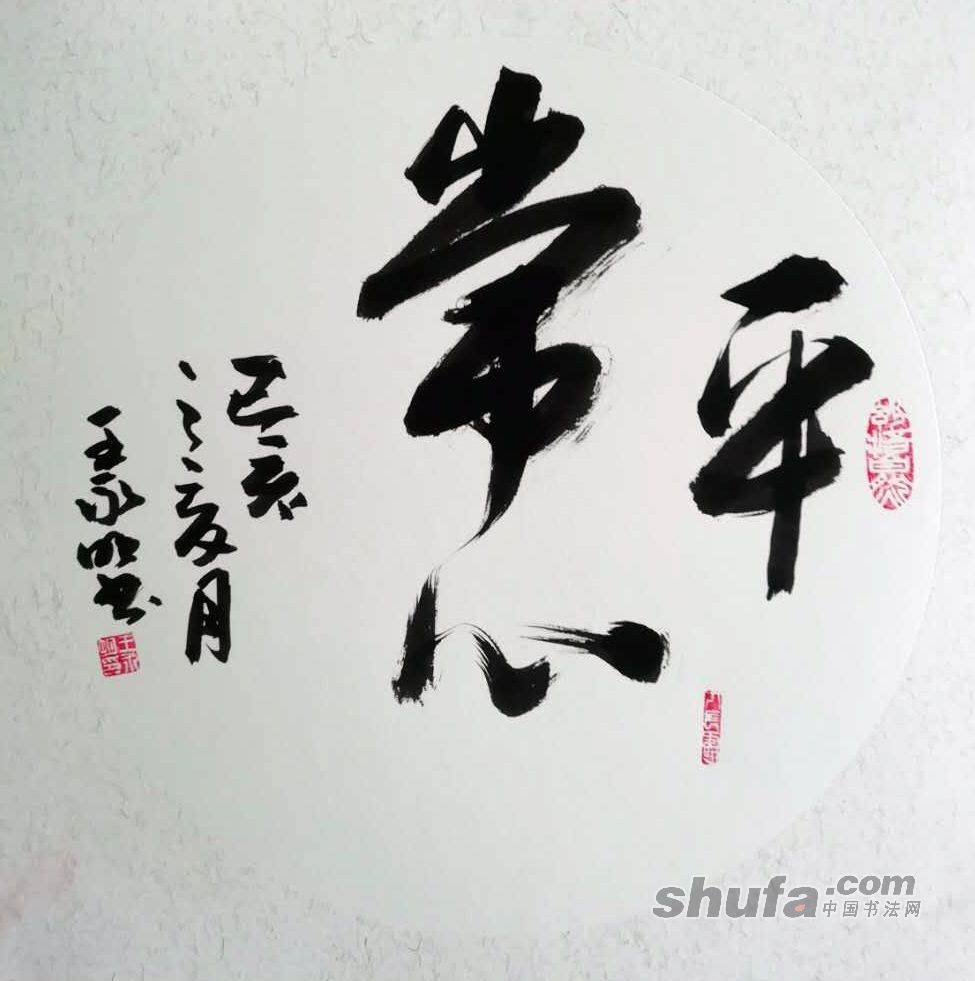 平
常心
己亥
之夏月
王永明书
shufa.com
中国书法网